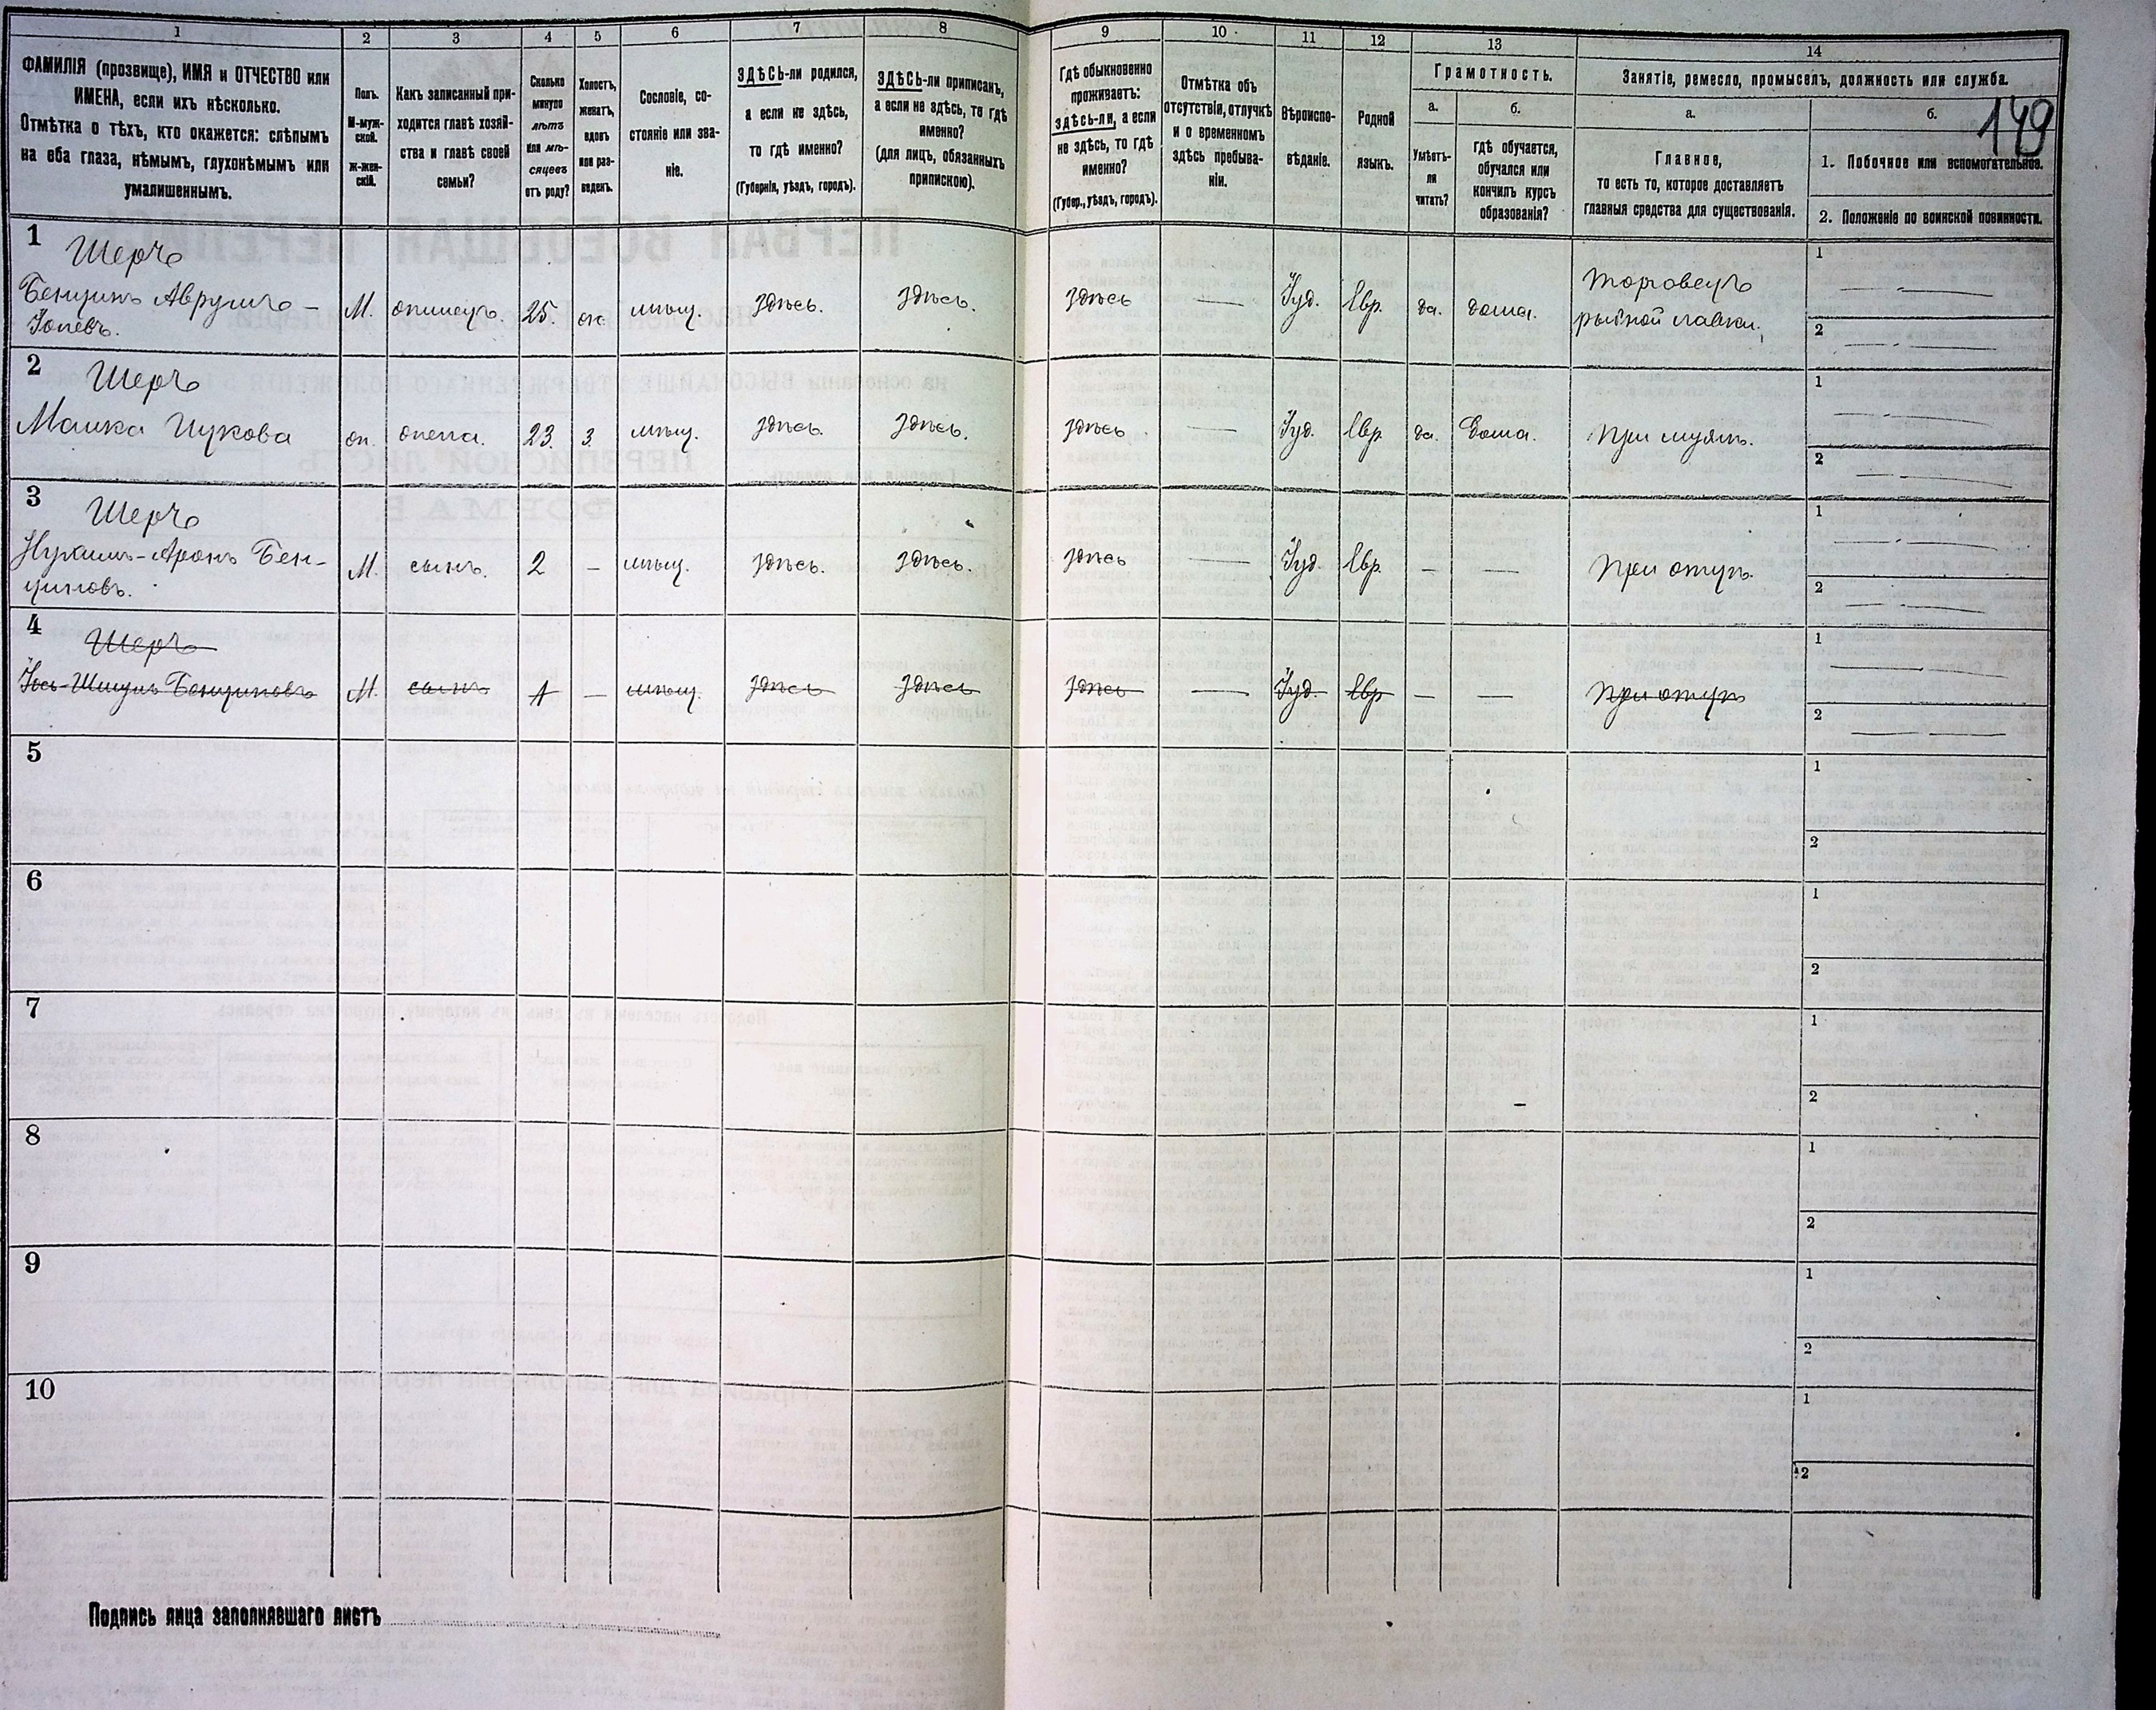 1 2 3 4 5 6 7 8 9 10 11 12 13 14
ФАМИЛІЯ (прозвище), ИМЯ и ОТЧЕСТВО или
ИМЕНА, если ихъ нѣсколько.
Отмѣтка о тѣхъ, кто окажется: слѣпымъ
на оба глаза, нѣмымъ, глухонѣмымъ или
умалишеннымъ.
Полъ.
М-муж-
ской.
Ж-жен-
скій.
Какъ записанный при-
ходится главѣ хозяй-
ства и главѣ своей
семьи?
Сколько
минуло
лѣтъ
или мѣ-
сяцевъ
отъ роду?
Холостъ,
женатъ,
вдовъ
или раз-
веденъ.
Сословіе, со-
стояніе или зва-
ніе.
ЗДѢСЬ-ли родился,
а если не здѣсь,
то гдѣ именно?
(Губернія, уѣздъ, городъ).
ЗДѢСЬ-ли приписанъ,
а если не здѣсь, то гдѣ
именно?
(для лицъ, обязанныхъ
припискою).
Гдѣ обыкновенно
проживаетъ:
здѣсь-ли, а если
не здѣсь, то гдѣ
именно?
(Губер., уѣздъ, городъ).
Отмѣтка объ
отсутствіи, отлучкѣ
и о временномъ
здѣсь пребыва-
ніи.
Вѣроиспо-
вѣданіе.
Родной
языкъ.
Грамотность.
а.
Умѣетъ-
ли
читать?
б.
гдѣ обучается,
обучался или
кончилъ курсъ
образованія?
Занятіе, ремесло, промыселъ, должность или служба.
а.
Главное,
то есть то, которое доставляетъ
главныя средства для существованія.
б.
149
1. Побочное или вспомогательное.
2. Положеніе по воинской повинности.
1
Шеръ
Бенционъ Аврумъ-
М. 25. мѣщ. здѣсь. здѣсь. здѣсь — Іуд. Евр. да. дома. Торговецъ
рыбной лавки.
1 —
2 —
2
Шеръ
Малка Ицкова 23 з. мѣщ. здѣсь. здѣсь. здѣсь — Іуд. Евр. да. дома. при мужѣ.
1 —
2 —
3
Шеръ
Нухимъ-Аронъ Бен-
ціоновъ. М. сынъ. 2 — мѣщ. здѣсь. здѣсь. здѣсь — Іуд. Евр. — — при отцѣ.
1 —
2 —
4
Шеръ
М. сынъ 1 — мѣщ. здѣсь здѣсь здѣсь — Іуд. Евр — — при отцѣ
1 —
2 —
5
1
2
6
1
2
7
1
2
8
1
2
9
1
2
10
1
2
Подпись лица заполнявшаго листъ